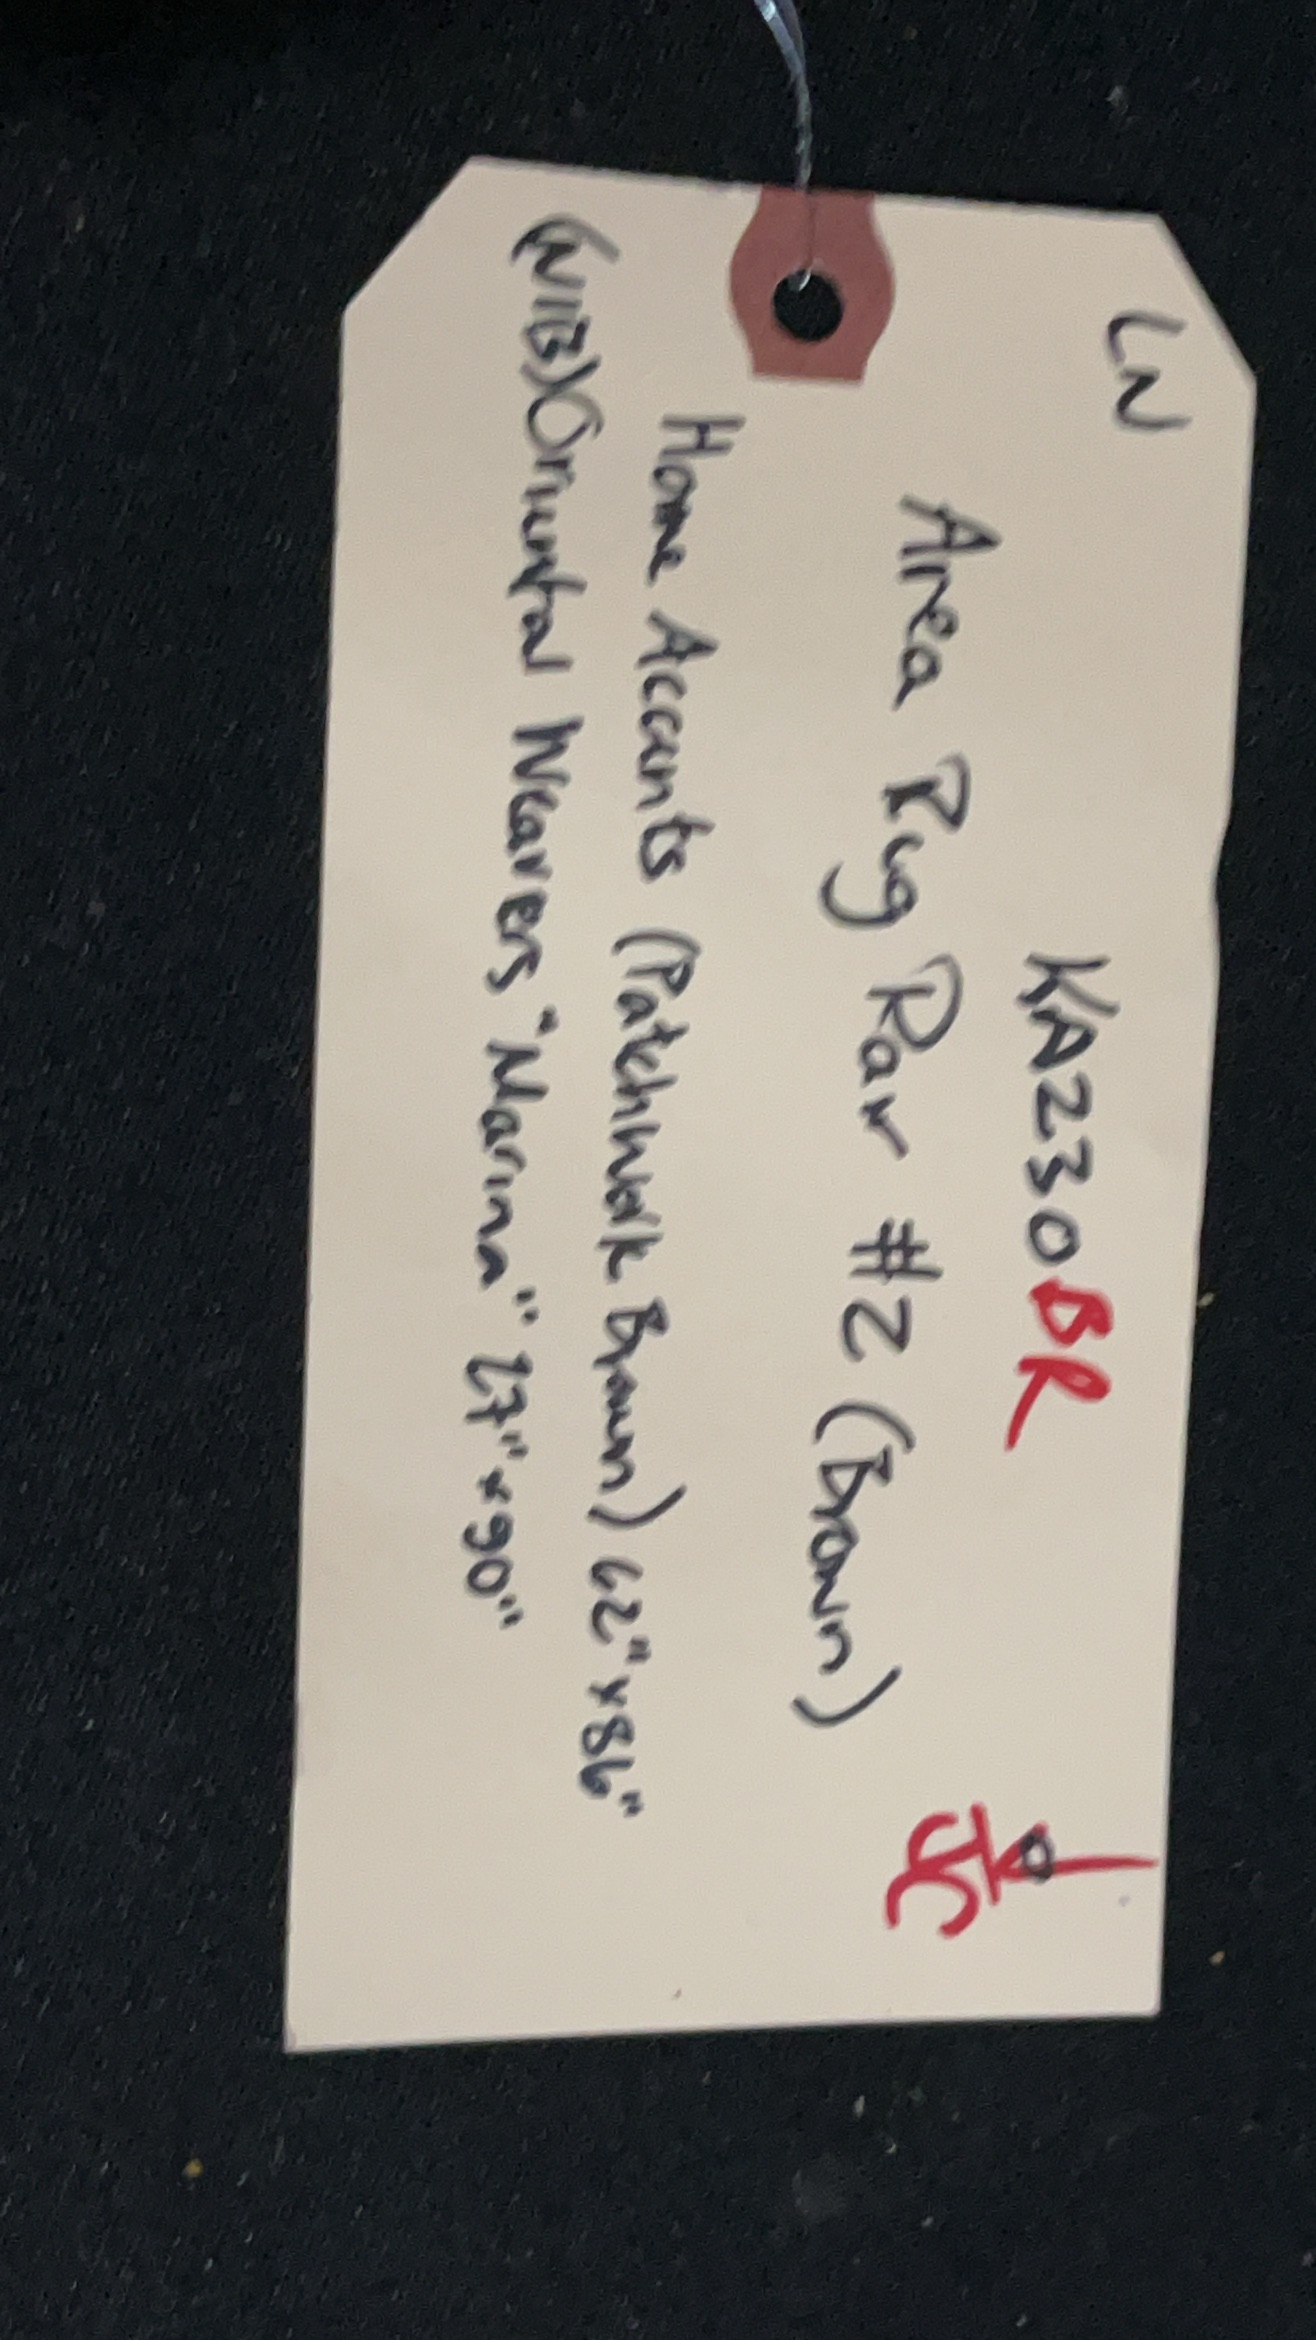 LN
KA230BR
Area Rug Pair #2 (Brown)
JC
Home Accents (Patchwork Brown) 62"x86"
(NIB) Oriental Weavers "Marina" 27"x90"